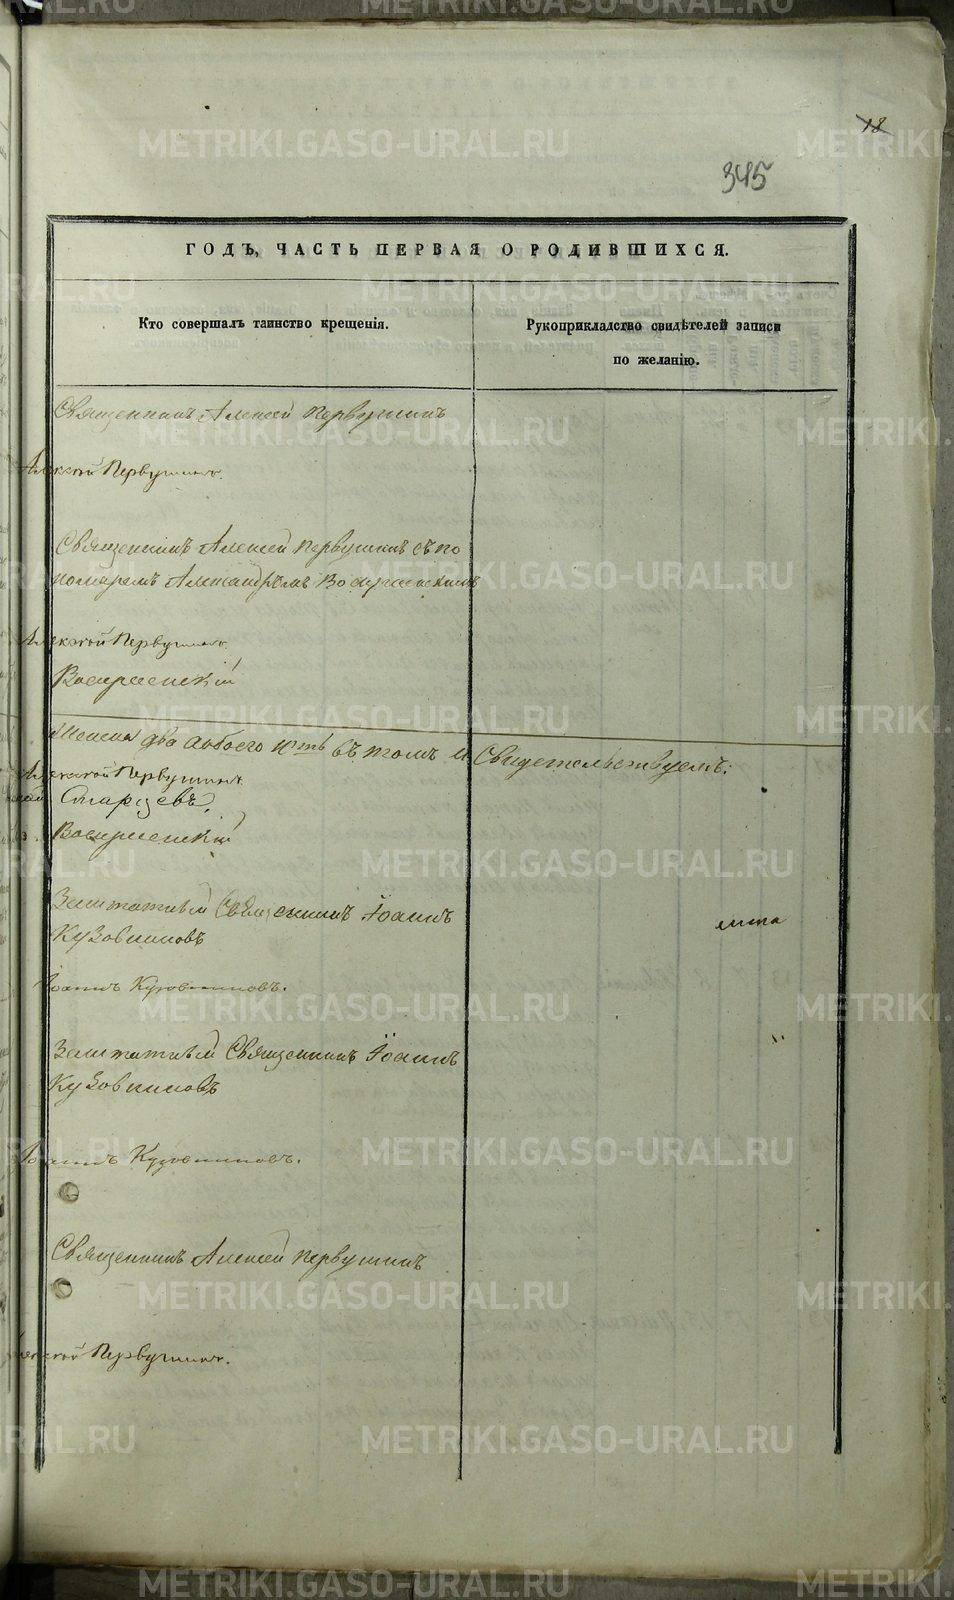 18
345
ГОДЪ, ЧАСТЬ ПЕРВАЯ О РОДИВШИХСЯ.
Кто совершалъ таинство крещенія.
Рукоприкладство свидѣтелей записи
по желанію.
Священникъ Алексей Первушинъ
Алексѣй Первушинъ.
Священникъ Алексей Первушинъ съ по
номаремъ Александромъ Воскресенскимъ
Алексѣй Первушинъ
Воскресенскій
два обоего въ томъ и Свидетельствуемъ:
Алексѣй Первушинъ
Старцевъ.
Воскресенскій
Заштатный Священникъ Іоаннъ
Кузовниковъ
лита
Іоаннъ Кузовниковъ.
Заштатный Священникъ Іоаннъ
Кузовниковъ
Іоаннъ Кузовниковъ.
Священникъ Алексей Первушинъ
Алексѣй Первушинъ.
METRIKI.GASO-URAL.RU